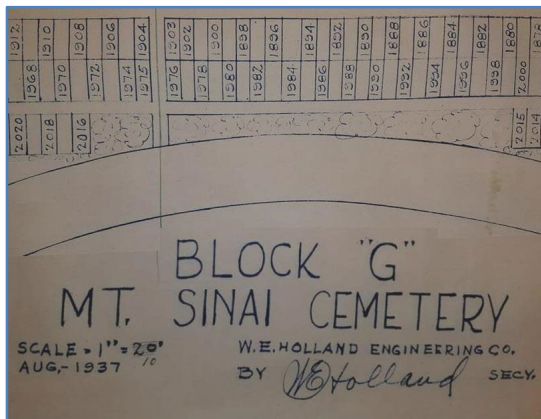 1912 1910 1908 1906 1904 1903 1902 1900 1898 1896 1894 1892 1890 1888 1886 1884 1882 1880 1878
1968 1970 1972 1974 1975 1976 1978 1980 1982 1984 1986 1988 1990 1992 1994 1996 1998 2000
2020 2018 2016 2015 2014
BLOCK "G"
MT. SINAI CEMETERY
SCALE = 1" = 20'
10
AUG,- 1937
W.E. HOLLAND ENGINEERING CO.
BY WEHolland SECY.